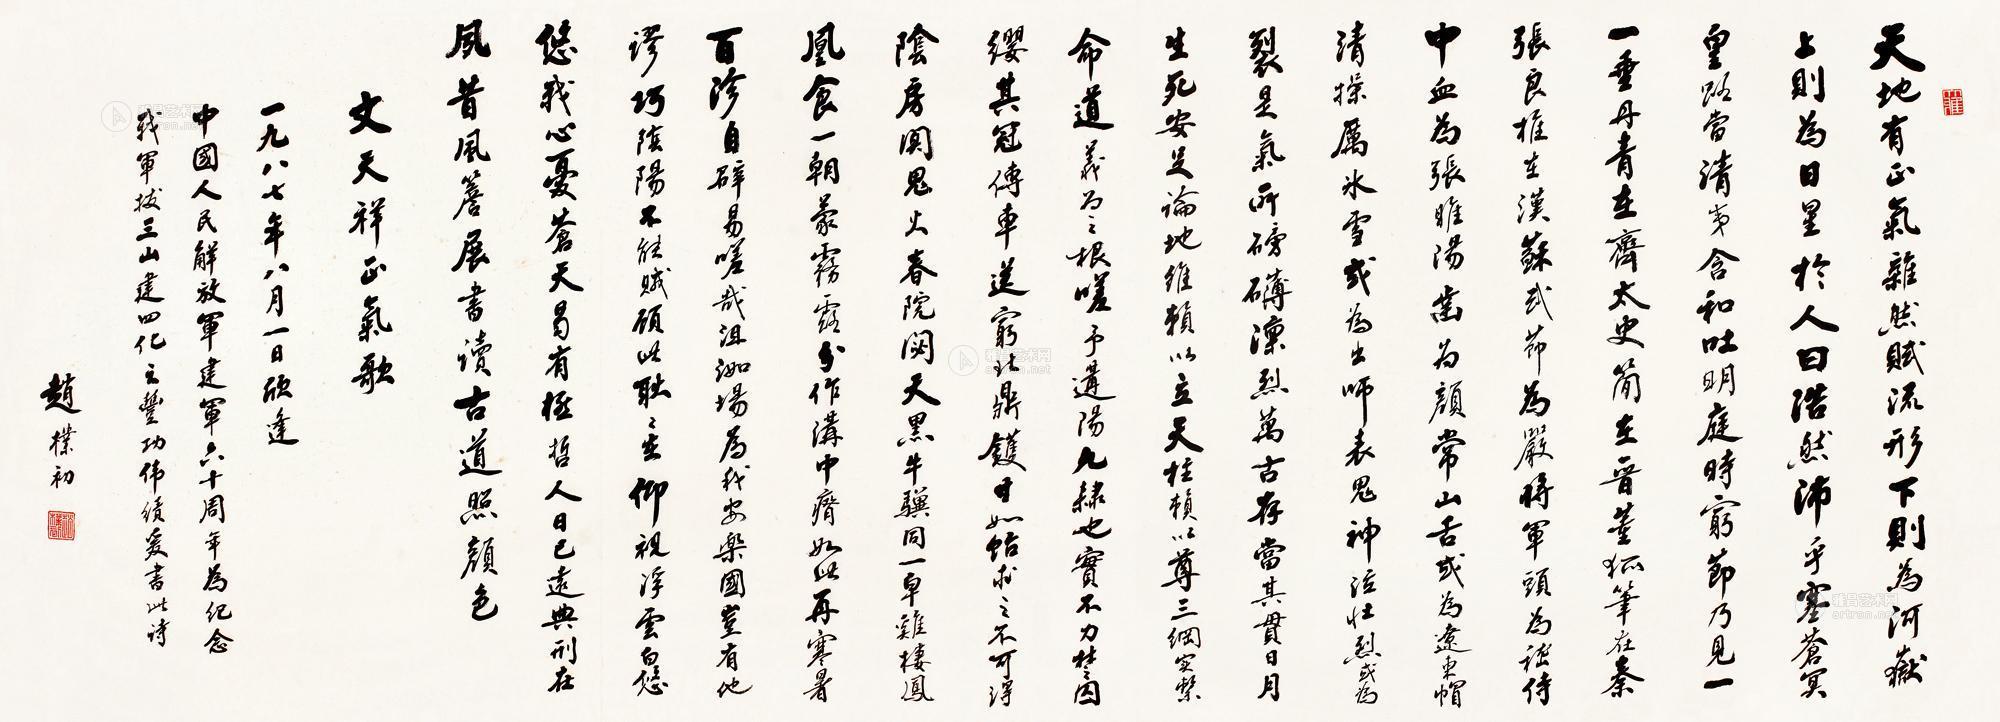 天地有正氣雜然賦流形下則為河嶽
上則為日星於人曰浩然沛乎塞蒼冥
皇路當清夷含和吐明庭時窮節乃見一
一垂丹青在齊太史簡在晉董狐筆在秦
張良椎在漢蘇武節為嚴將軍頭為嵇侍
中血為張睢陽齒為顏常山舌或為遼東帽
清操厲冰雪或為出師表鬼神泣壯烈或為
裂是氣所磅礴凜烈萬古存當其貫日月
生死安足論地維賴以立天柱賴以尊三綱实繫
命道義為之根嗟予遘陽九隸也實不力楚囚
纓其冠傳車送窮北鼎鑊甘如飴求之不可得
陰房闃鬼火春院閟天黑牛驥同一皁雞棲鳳
凰食一朝蒙霧露分作溝中瘠如此再寒暑
百沴自辟易嗟哉沮洳場為我安樂國豈有他
謬巧陰陽不能賊顧此耿々在仰視浮雲白悠
悠我心憂蒼天曷有極哲人日已遠典刑在
夙昔風簷展書讀古道照顏色
文天祥正氣歌
一九八七年八月一日欣逢
中國人民解放軍建軍六十周年為纪念
我軍拔三山建四化之豐功伟績爰書此诗
趙樸初
雅昌艺术网
artron.net
雅昌艺术网
artron.net
雅昌艺术网
artron.net